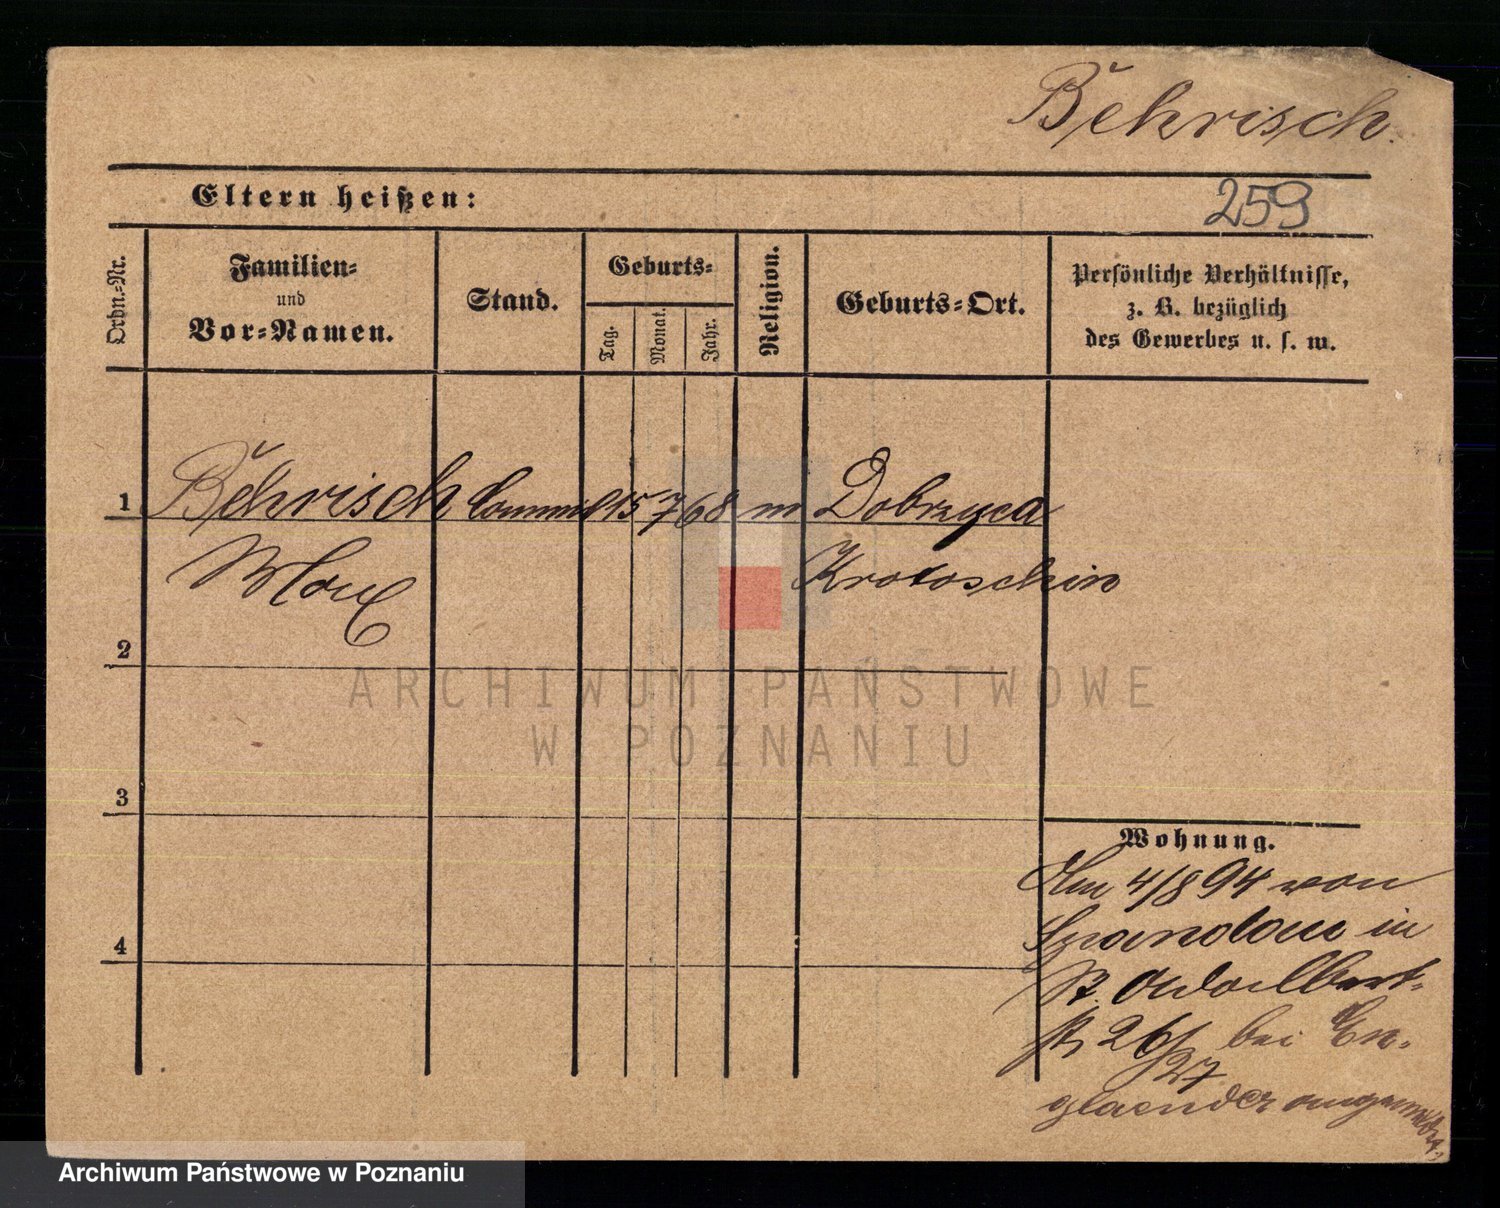 Behrisch.
Eltern heißen:
259
Ordn.-Nr.
Familien-
und
Vor-Namen.
Stand.
Geburts-
Tag.
Monat.
Jahr.
Religion.
Geburts-Ort.
Persönliche Verhältnisse,
z. B. bezüglich
des Gewerbes u. s. w.
1 Behrisch Commis 15 7 68 m Dobrzyca
Max Krotoschin
2
3
4
ARCHIWUM PAŃSTWOWE
W POZNANIU
Wohnung.
Am 4/8 94 von
Spandau in
St. Adalbert-
str 26/27 bei En-
glaender angemeldet.
Archiwum Państwowe w Poznaniu